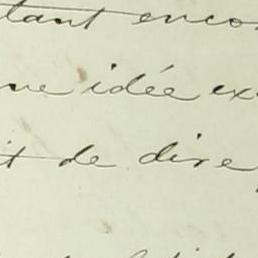 tant enco
ne idée ex
it de dire